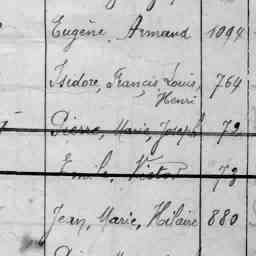 Eugène, Armand 1094
Isidore, Françis Louis, 764
Henri
Pierre, Marie, Joseph 72
Emile, Victor 73
Jean, Marie, Hilaire 880